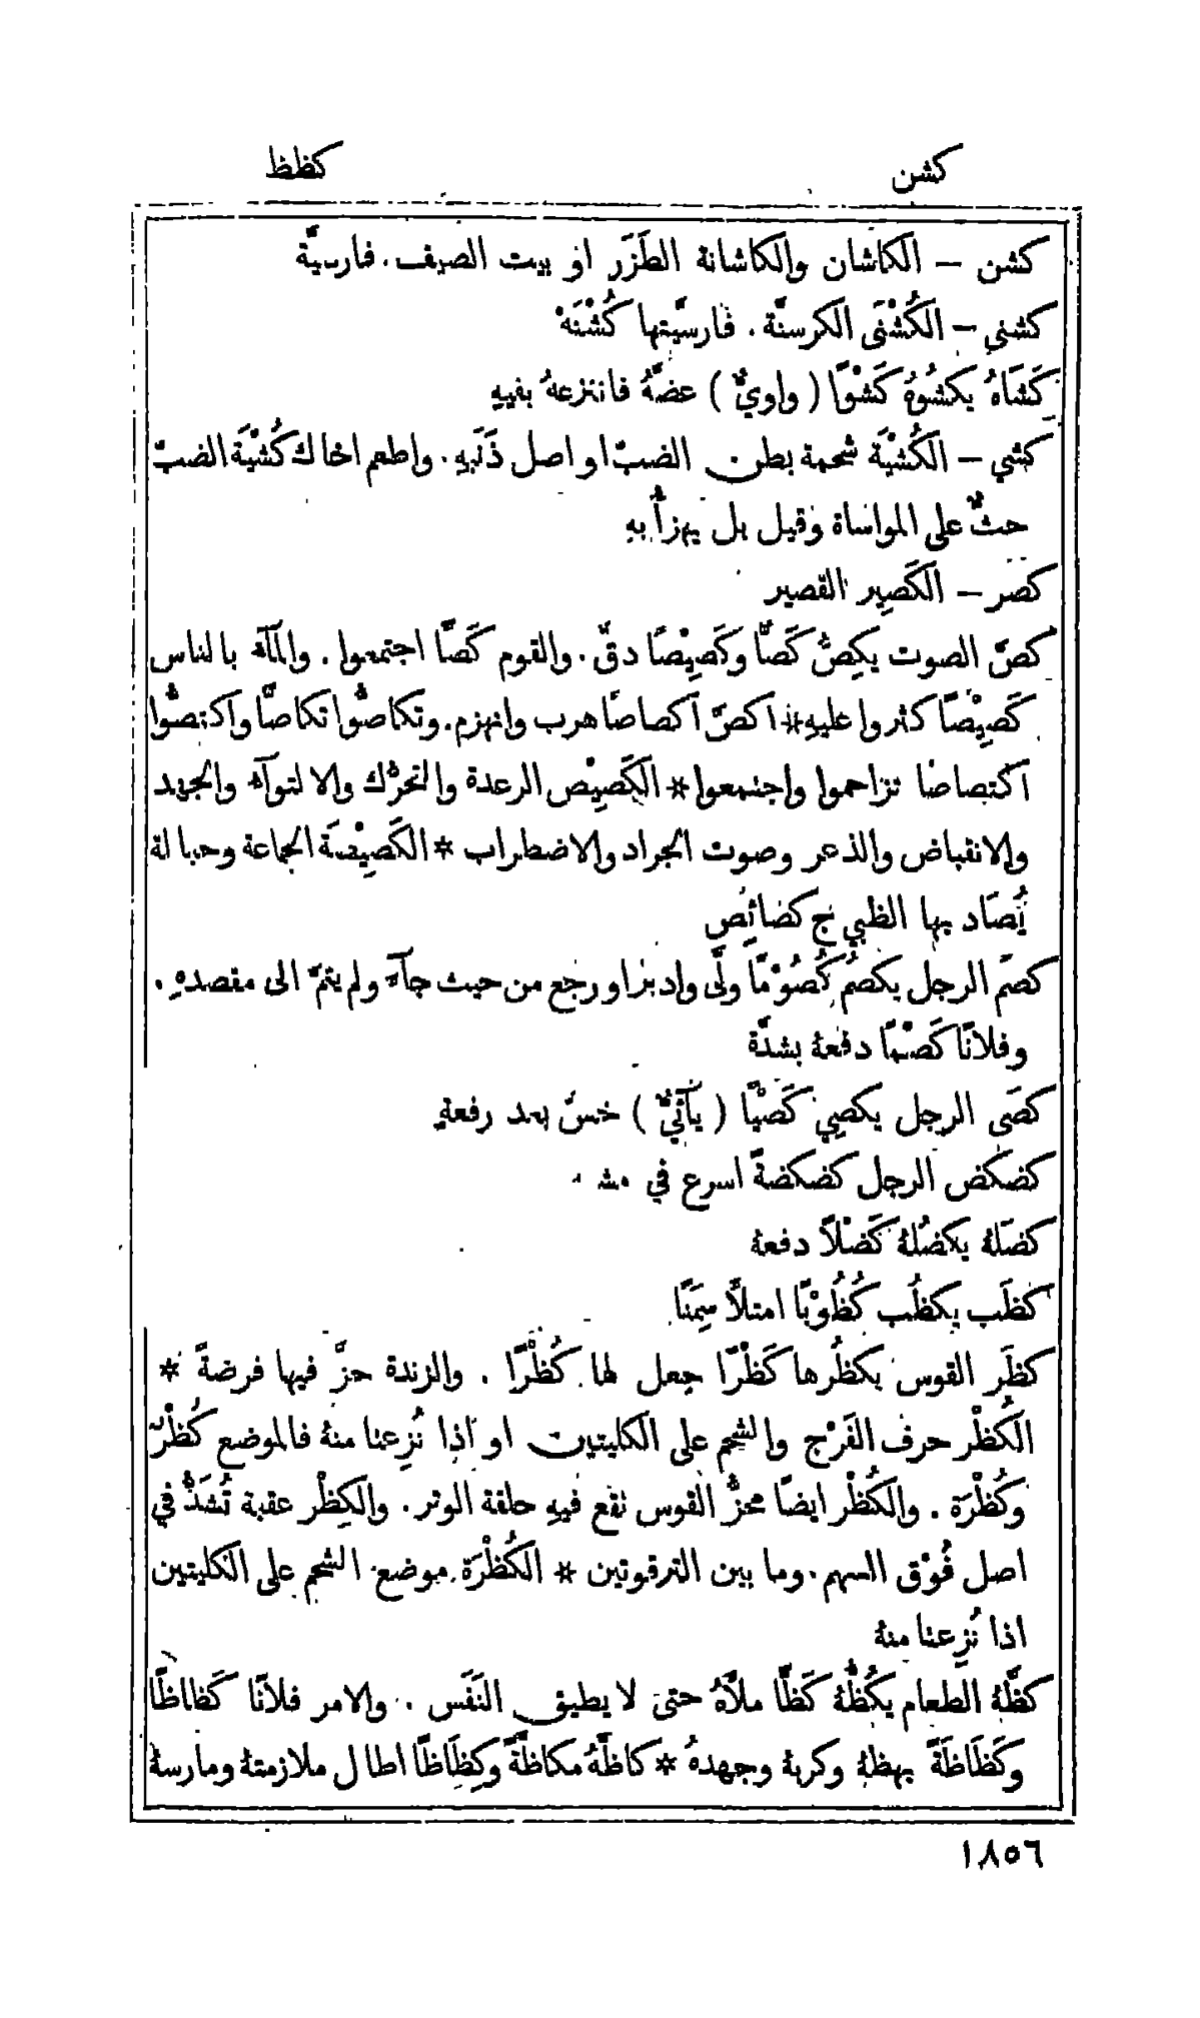 كشن
كظظ
كشن — الكاشان والكاشانة الطَزَر او بيت الصيف. فارسيَّة
كشنى — الكُشْنَى الكرسنَّة. فارسيَّتها كُشْنَهْ
كَشَاهُ يكشُوهُ كَشْوًا (واويٌّ) عضَّهُ فانتزعهُ بفيهِ
كشي — الكُشْيَة شحمة بطن الضبّ او اصل ذَنَبِهِ. واطعم اخاك كُشْيَة الضبّ
حثٌّ على المواساة وقيل بل يهزأُ بهِ
كصر — الكَصِير القصير
كصَّ الصوت يكِصُّ كَصًّا وكَصِيْصًا دقَّ. والقوم كَصًّا اجتمعوا. والمآءُ بالناس
كَصِيْصًا كثروا عليهِ * اكصَّ اكصاصًا هرب وانهزم. وتكاصُّوا تكاصًّا واكتصُّوا
اكتصاصًا تزاحموا واجتمعوا * الكَصِيْص الرعدة والتحرُّك والالتوآءُ والجهد
والانقباض والذعر وصوت الجراد والاضطراب * الكَصِيْصَة الجماعة وحبالة
يُصَاد بها الظبي ج كصائِص
كصَم الرجل يكصُم كُصُوْمًا ولَّى وادبر او رجع من حيث جآءَ ولم يتمَّ الى مقصدهِ.
وفلانًا كَصْمًا دفعهُ بشدَّة
كصَى الرجل يكصِي كَصْيًا (يآئيٌّ) خسَّ بعد رفعةٍ
كضكض الرجل كضكضةً اسرع في
كضَلهُ يكضُلهُ كَضْلًا دفعهُ
كظَب يكظُب كُظُوْبًا امتلأَ سِمَنًا
كظَر القوس يكظُرها كَظْرًا جعل لها كُظْرًا. والزندة حزَّ فيها فرضةً *
الكُظْر حرف الفَرْج والشحم على الكليتين او اذا نُزِعتا منهُ فالموضع كُظْرٌ
وكُظْرَة. والكُظْر ايضًا محزُّ القوس تقع فيهِ حلقة الوتر. والكِظْر عقبة تُشَدُّ في
اصل فُوْق السهم. وما بين الترقوتين * الكُظْرَة موضع الشحم على الكليتين
اذا نُزِعتا منهُ
كظَّهُ الطعام يكُظُّهُ كَظًّا ملأَهُ حتى لا يطيق النَفَس. والامر فلانًا كَظاظًا
وكَظَاظَةً بهظهُ وكربهُ وجهدهُ * كاظَّهُ مكاظَّةً وكِظَاظًا اطال ملازمتهُ ومارسهُ
١٨٥٦